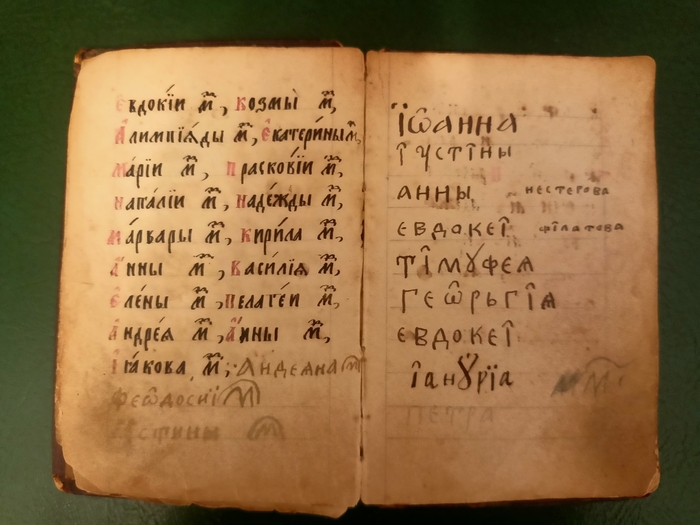 Евдокі́и м҃, Козмы м҃,
Алимпїѧ́ды м҃, Екатери́ны м҃,
Ма́рїи м҃, Прасковї́и м҃,
Наталїи м҃, Наде́жды м҃,
Ма́рвары м҃, Кири́ла м҃,
А́нны м҃, Васи́лїѧ м҃,
Еле́ны м҃, Пелаге́и м҃,
Андре́ѧ м҃, А́нны м҃,
Іꙗ́кова м҃, Андеѧна м
Феѡдосиї м
м
Їѡанна
Їустїны
анны нестерова
евдокеї фїлатова
тїмѹфеѧ
геѡрьгїѧ
евдокеї
їанȣрїа м
петра